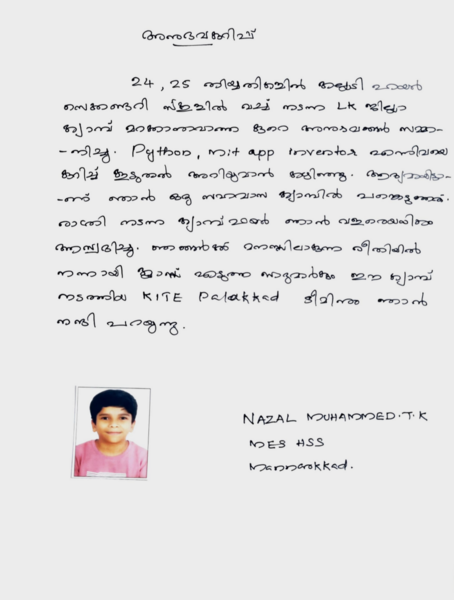 അനുഭവക്കുറിപ്പ്
24, 25 തിയ്യതികളിൽ കല്ലടി ഹയർ
സെക്കണ്ടറി സ്കൂളിൽ വച്ച് നടന്ന LK ജില്ലാ
ക്യാമ്പ് മറക്കാനാവാത്ത കുറെ അനുഭവങ്ങൾ സമ്മാ-
-നിച്ചു. Python, mit app inventor എന്നിവയെ
കുറിച്ച് കൂടുതൽ അറിയുവാൻ കഴിഞ്ഞു. ആദ്യമായിട്ടാ-
-ണ് ഞാൻ ഒരു സഹവാസ ക്യാമ്പിൽ പങ്കെടുത്തത്.
രാത്രി നടന്ന ക്യാമ്പ് ഫയർ ഞാൻ വളരെയധികം
ആസ്വദിച്ചു. ഞങ്ങൾക്ക് മനസ്സിലാകുന്ന രീതിയിൽ
നന്നായി ക്ലാസ് എടുത്ത സാറുമാർക്കും ഈ ക്യാമ്പ്
നടത്തിയ KITE Palakkad ടീമിനും ഞാൻ
നന്ദി പറയുന്നു.
NAZAL MUHAMMED.T.K
MES HSS
Mannarkkad.